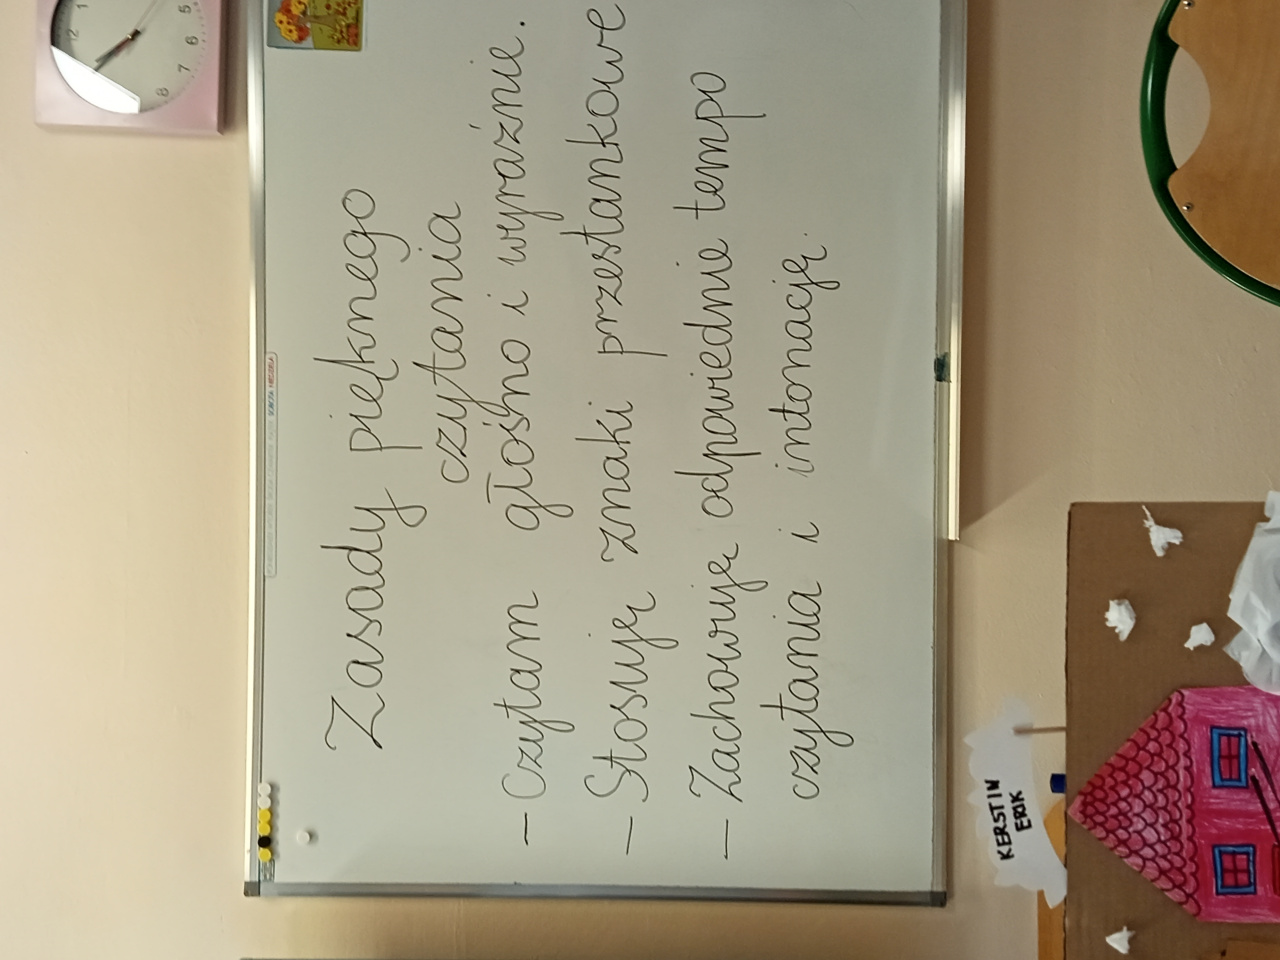 Zasady pięknego
czytania
- Czytam głośno i wyraźnie.
- Stosuję znaki przestankowe
- Zachowuję odpowiednie tempo
czytania i intonację.
KERSTIN
ERIK
12
1
5
6
7
8
SOBOTA NIEDZIELA